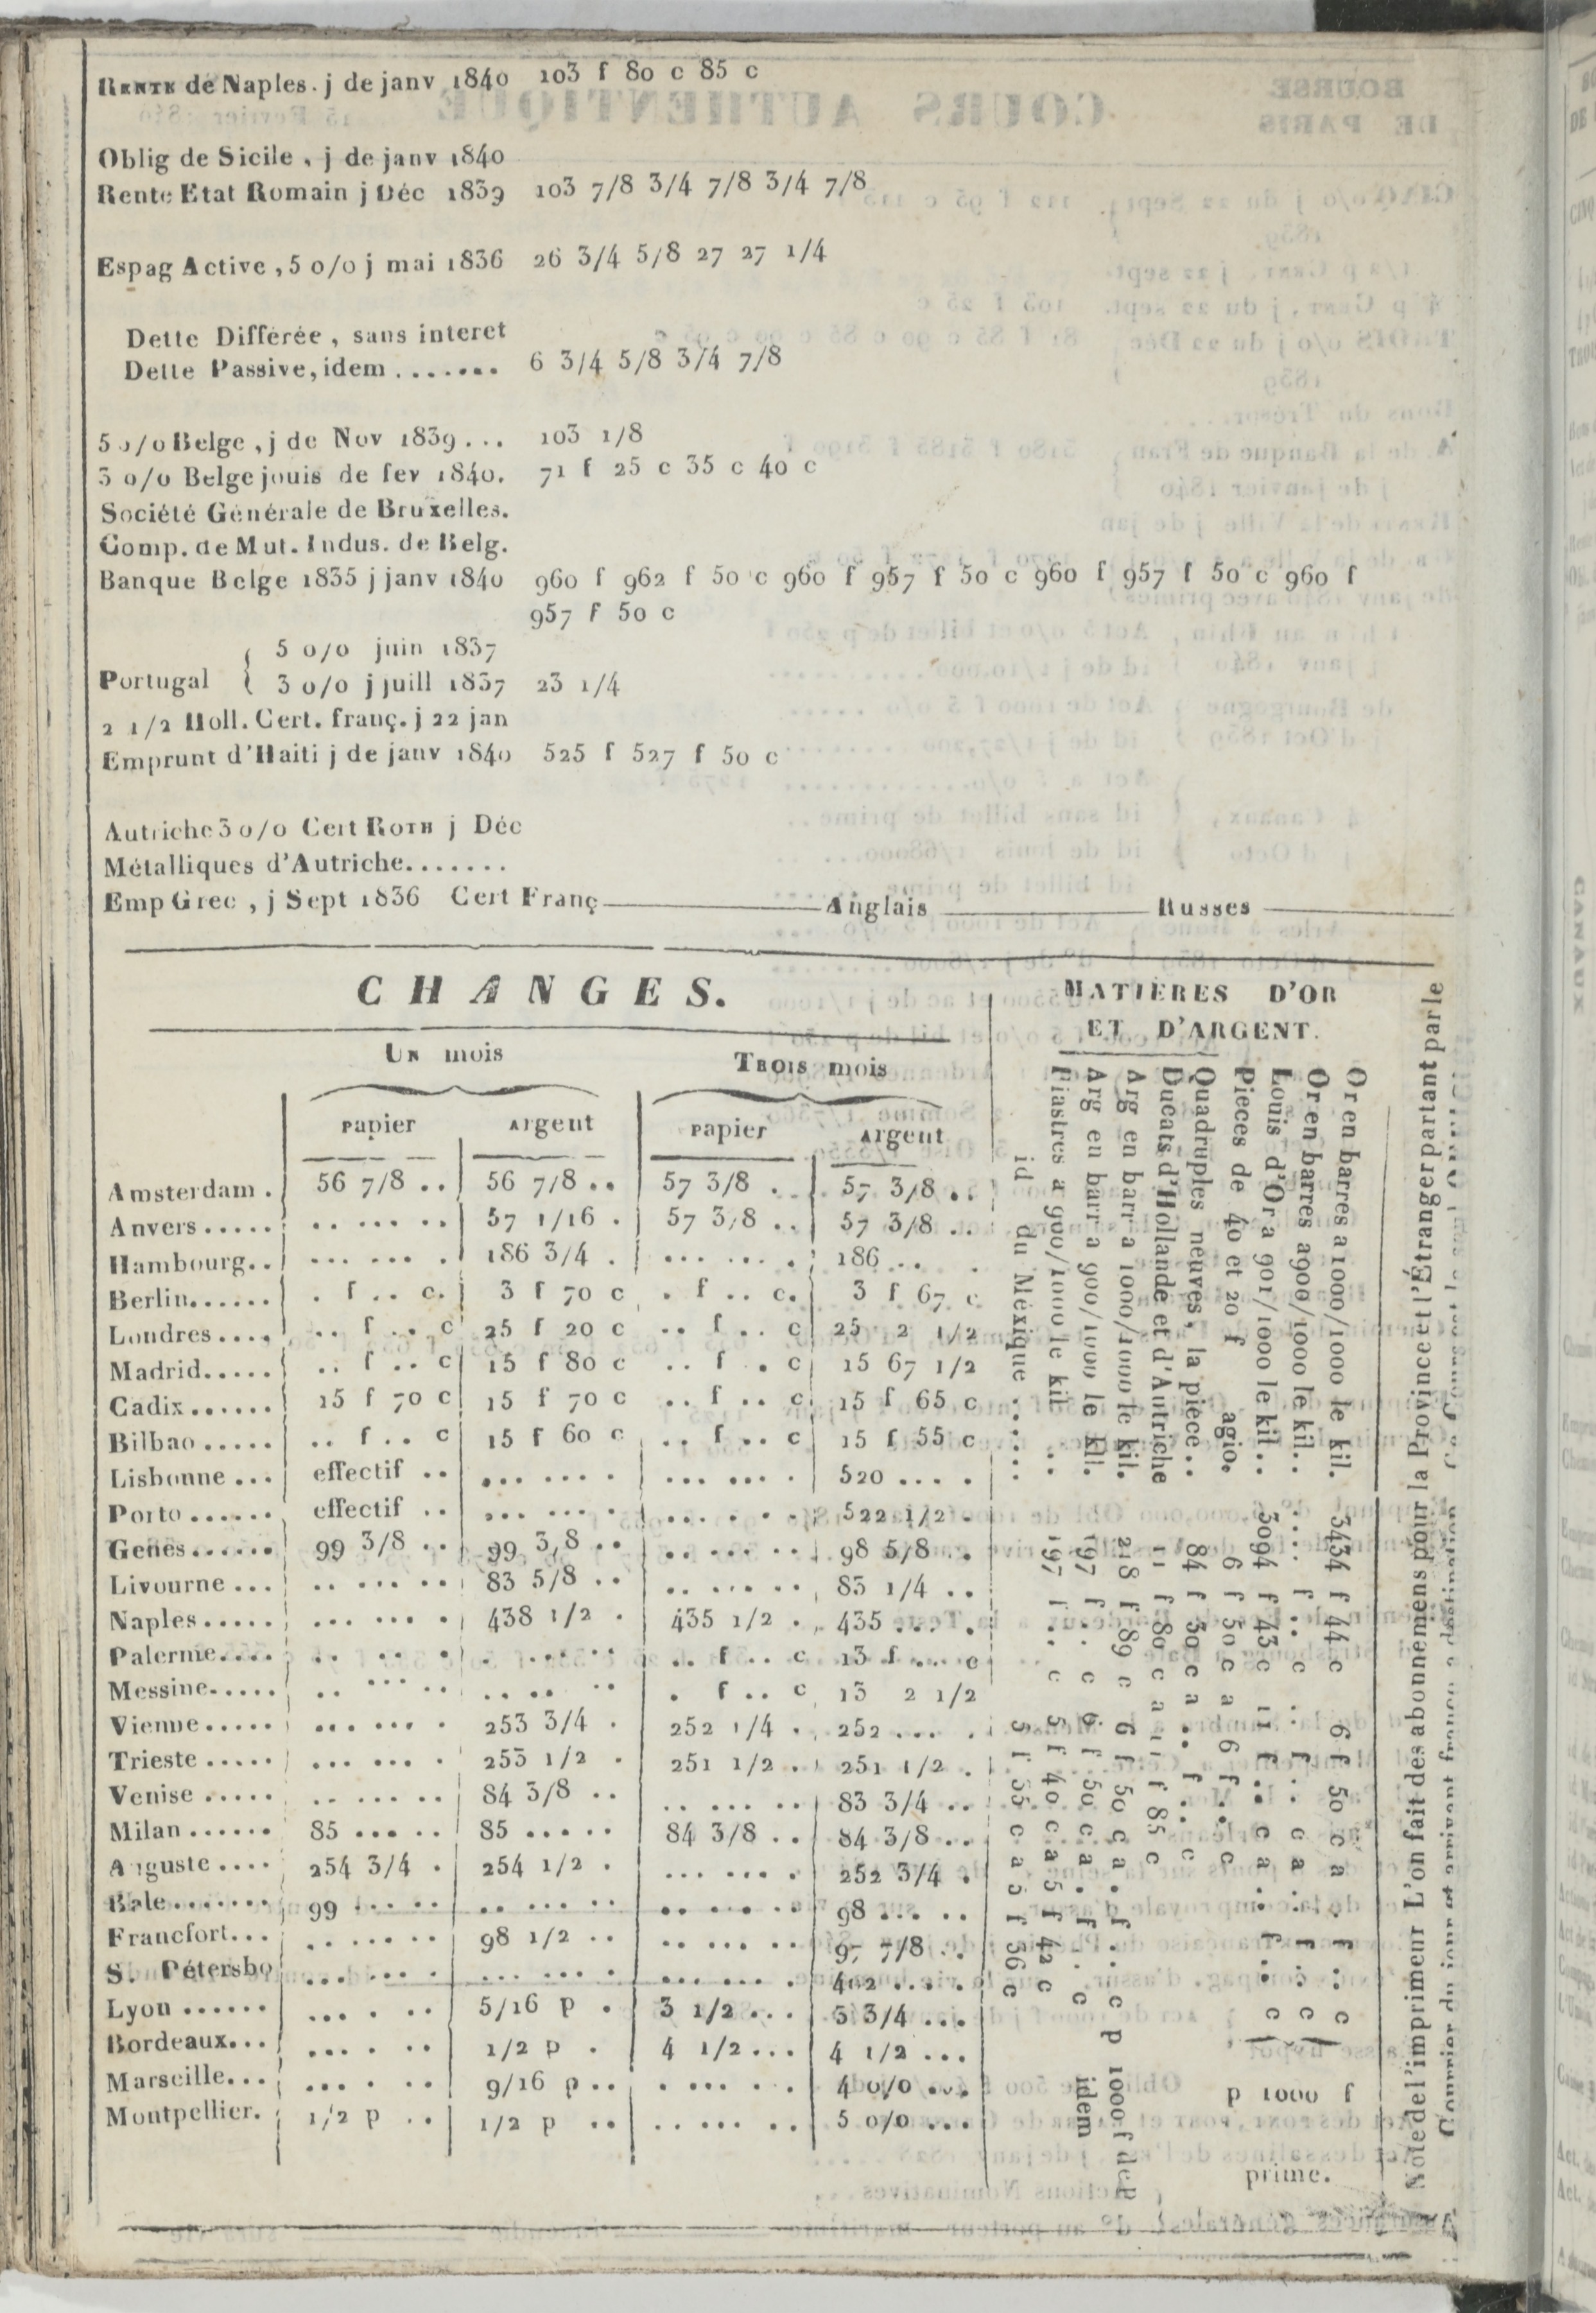 RENTE de Naples. j de janv 1840 103 f 80 c 85 c
Oblig de Sicile, j de janv 1840
Rente Etat Romain j Déc 1839 103 7/8 3/4 7/8 3/4 7/8
Espag Active, 5 o/o j mai 1836 26 3/4 5/8 27 27 1/4
Dette Différée, sans interet
Dette Passive, idem ....... 6 3/4 5/8 3/4 7/8
5 o/o Belge, j de Nov 1839... 103 1/8
3 o/o Belge jouis de fev 1840. 71 f 25 c 35 c 40 c
Société Générale de Bruxelles.
Comp. de Mut. Indus. de Belg.
Banque Belge 1835 j janv 1840 960 f 962 f 50 c 960 f 957 f 50 c 960 f 957 f 50 c 960 f
957 f 50 c
5 o/o juin 1837
Portugal { 3 o/o j juill 1837 23 1/4
2 1/2 Holl. Cert. franç. j 22 jan
Emprunt d'Haiti j de janv 1840 525 f 527 f 50 c
Autriche 3 o/o Cert ROTH j Déc
Métalliques d'Autriche.......
Emp Grec, j Sept 1836 Cert Franç Anglais Russes
CHANGES.
UN mois TROIS mois
papier Argent papier Argent
Amsterdam . 56 7/8 .. 56 7/8 .. 57 3/8 . 57 3/8 ..
Anvers ..... .. ... .. 57 1/16 . 57 3/8 .. 57 3/8 ..
Hambourg.. ... ... . 186 3/4 . ... ... . 186 .. .
Berlin...... . f .. c. 3 f 70 c . f .. c. 3 f 67 c
Londres .... .. f .. c 25 f 20 c .. f .. c 25 2 1/2
Madrid..... .. f .. c 15 f 80 c .. f . c 15 67 1/2
Cadix ...... 15 f 70 c 15 f 70 c .. f .. c 15 f 65 c
Bilbao ..... .. f .. c 15 f 60 c .. f .. c 15 f 55 c
Lisbonne ... effectif .. ... ... . ... ... . 520 ....
Porto ...... effectif .. ... ... . ... . . . 522 1/2 .
Genes...... 99 3/8 .. 99 3/8 .. .. ... .. 98 5/8 ..
Livourne ... .. ... .. 83 5/8 .. .. ... .. 83 1/4 ..
Naples ..... ... ... . 438 1/2 . 435 1/2 . 435 ... .
Palerme.... .. .. . . ... .. .. f .. c 13 f ... c
Messine..... .. ... .. .. .. .. . f .. c 13 2 1/2
Vienne ..... ... ... . 253 3/4 . 252 1/4 . 252 ... .
Trieste ..... ... ... . 253 1/2 . 251 1/2 . 251 1/2 .
Venise ..... .. ... .. 84 3/8 .. .. ... .. 83 3/4 ..
Milan ...... 85 ... .. 85 ... .. 84 3/8 .. 84 3/8 ..
Auguste .... 254 3/4 . 254 1/2 . ... ... . 252 3/4 .
Bale....... 99 ... .. .. ... .. .. ... .. 98 ... ..
Francfort... .. ... .. 98 1/2 .. .. ... .. 97 7/8 ..
S. Pétersbo ... ... . ... ... . ... ... . 402 ... .
Lyon ...... ... . .. 5/16 p . 3 1/2 ... 3 3/4 ...
Bordeaux... ... . .. 1/2 p . 4 1/2 ... 4 1/2 ...
Marseille... ... . .. 9/16 p .. . ... . . 4 o/o ...
Montpellier. 1/2 p .. 1/2 p .. .. ... .. 5 o/o ...
MATIÈRES D'OR
ET D'ARGENT.
Or en barres a 1000/1000 le kil. 3434 f 44 c 6 f 50 c a . f . c
Or en barres a 900/1000 le kil.. .... f .. c .. f .. c a . f .. c
Louis d'Or a 901/1000 le kil .. 3094 f 43 c 11 f .. c a .. f .. c
Pieces de 40 et 20 f agio. 6 f 50 c a 6 f .. c
p 1000 f
prime.
Quadruples neuves, la pièce .. 84 f 30 c a .. f .. c
Ducats d'Hollande et d'Autriche 11 f 80 c a 11 f 85 c
Arg en barr a 1000/1000 le kil. 218 f 89 c 6 f 50 c a . f .. c p 1000 f de p
Arg en barr a 900/1000 le kil. 197 f . c 6 f 50 c a . f . c idem
Piastres a 900/1000 le kil .. 197 f .. c 5 f 40 c a 5 f 42 c
id du Méxique ..... 5 f 55 c a 5 f 56 c
Note de l'imprimeur L'on fait des abonnemens pour la Province et l'Étranger partant par le